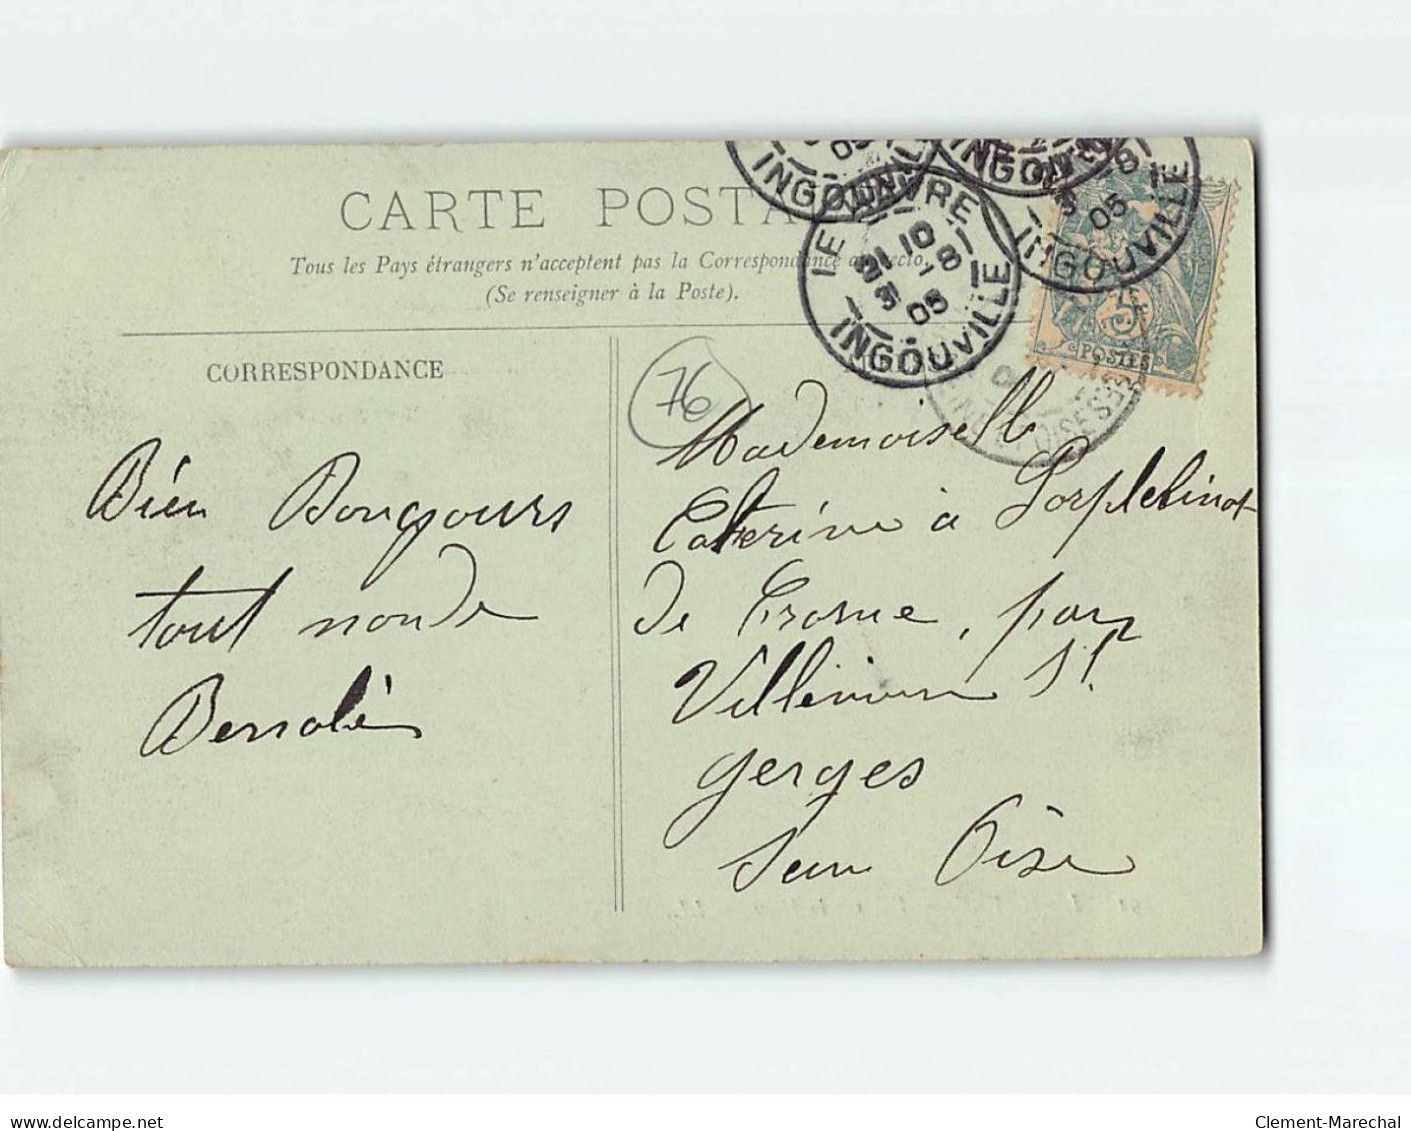 CARTE POSTA
Tous les Pays étrangers n'acceptent pas la Correspondance au recto.
(Se renseigner à la Poste).
LE HAVRE
10
21 - 8
05
INGOUVILLE
INGOUVILLE
INGOUVILLE
05
INGOUVILLE
5
POSTES
CORRESPONDANCE
76
Bien Bongjours
tout monde
Mademoiselle
Caterine à
de Crosne, par
Villeneuve St
gerges
Seine Oise
Clement-Marechal
www.delcampe.net